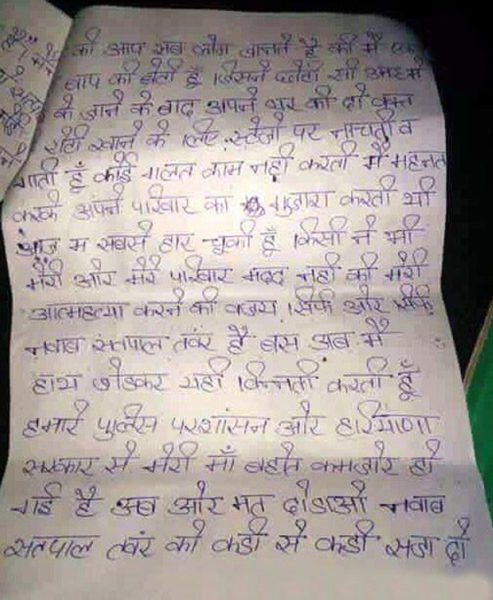 की आप सब लोग जानते है की मै एक
बाप की बेटी हूँ जिसने छोटी सी उमर मे
के जाने के बाद अपने घर की दो वक्त
रोटी खाने के लिए स्टेजो पर नाचती व
गाती हूँ कोई गलत काम नही करती मै महनत
करके अपने परिवार का गुजारा करती थी
आज म सबसे हार चूकी हूँ किसी ने भी
मेरी और मेरे परिवार मदद नही की मेरी
आत्महत्या करने की वजय सिर्फ और सिर्फ
नवाब सतपाल तवंर है बस अब मै
हाथ जोडकर यही विनती करती हूँ
हमारे पुलिस परशांसन और हरियाणा
सरकार से मेरी माँ बहोत कमजोर हो
गई है अब और मत दोडाओ नवाब
सतपाल तवंर को कडी से कडी सजा दो